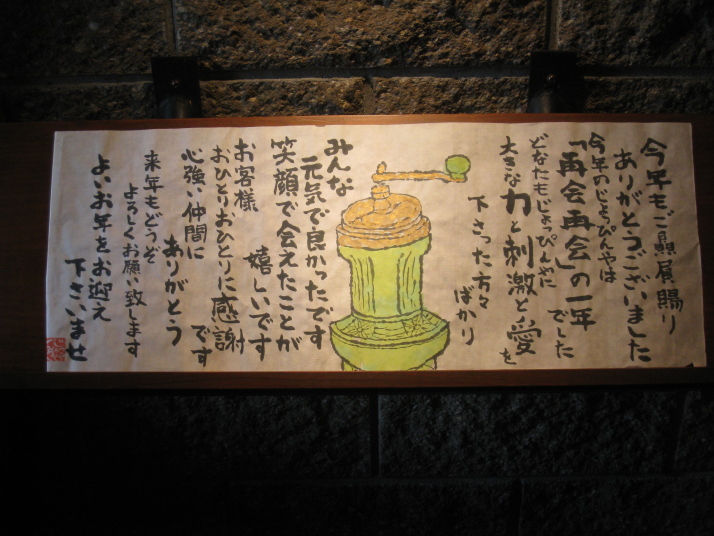 今年もご贔屓賜り
ありがとうございました
今年のじょっぴんやは
「再会再会」の一年
でした
どなたもじょっぴんやに
大きな力と刺激と愛を
下さった方々
ばかり
みんな
元気で良かったです
笑顔で会えたことが
嬉しいです
お客様
おひとりおひとりに感謝
です
心強い仲間に
ありがとう
来年もどうぞ
よろしくお願い致します
よいお年をお迎え
下さいませ